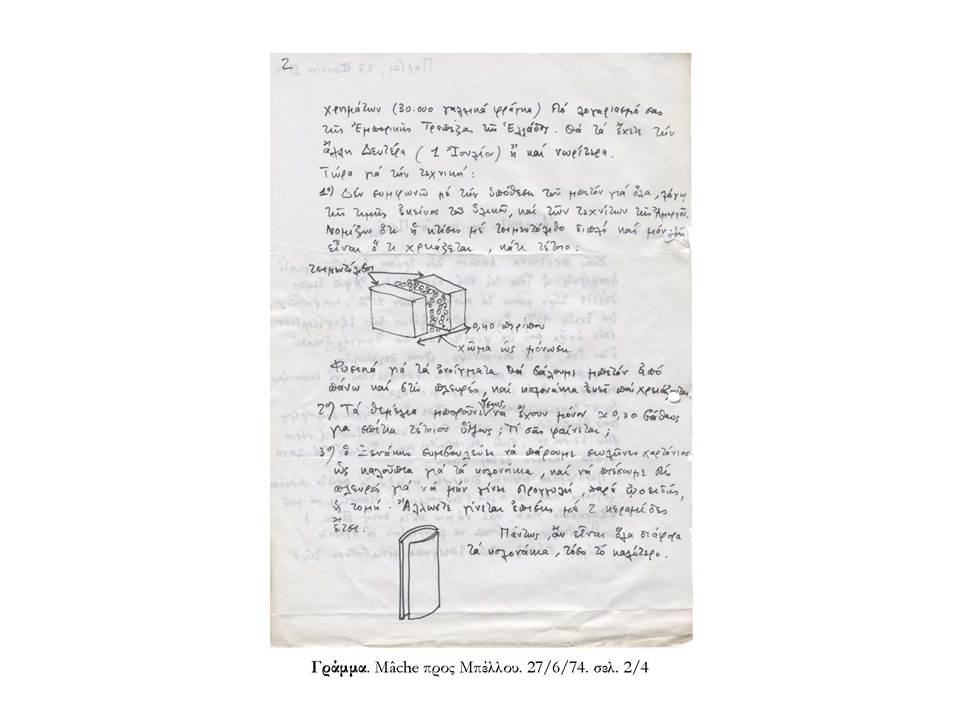 2
χρημάτων (30.000 γαλλικά φράγκα) στό λογαριασμό σας
τῆς Ἐμπορικῆς Τραπέζας τῆς Ἑλλάδος. Θά τά ἔχετε τήν
ἄλλη Δευτέρα (1 Ἰουλίου) ἤ καί νωρίτερα.
Τώρα γιά τήν τεχνική:
1º) Δέν συμφωνῶ μέ τήν ὑπόθεση τοῦ μπετόν γιά ὅλα, λόγω
τῆς τιμῆς ἐκείνου τοῦ ὑλικοῦ, καί τῶν τεχνίτων τῆς Ἀμοργοῦ.
Νομίζω ὅτι ἡ κτίσις μέ τσιμεντόλιθο διπλό καί μόνωση
εἶναι ὅ τι χρειάζεται, κάτι τέτοιο:
τσιμεντόλιθοι
0,40 περίπου
χῶμα ὡς μόνωση
Φυσικά γιά τά ἀνοίγματα θά βάλουμε μπετόν ἀπό
πάνω καί στίς πλευρές, καί κολονάκια ἐκεῖ πού χρειάζεται.
2º) Τά θεμέλια μποροῦνε ἴσως νά ἔχουν μόνον 0,30 βάθος
γιά σπίτια τέτοιου ὕψους; Τί σᾶς φαίνεται;
3º) ὁ Ξενάκης συμβουλεύει νά πάρουμε σωλῆνες χαρτόνιου
ὡς καλούπια γιά τά κολονάκια, καί νά πιέσουμε τίς
πλευρές γιά νά μήν γίνει στρογγυλή, παρά ὠοειδής,
ἡ τομή. Ἄλλωστε γίνεται ἐπίσης μέ 2 κεραμίδες
ἔτσι:
Πάντως, ἄν εἶναι ὅλα διάφορα
τά κολονάκια, τόσο τό καλύτερο.
Γράμμα. Mâche προς Μπέλλου. 27/6/74. σελ. 2/4